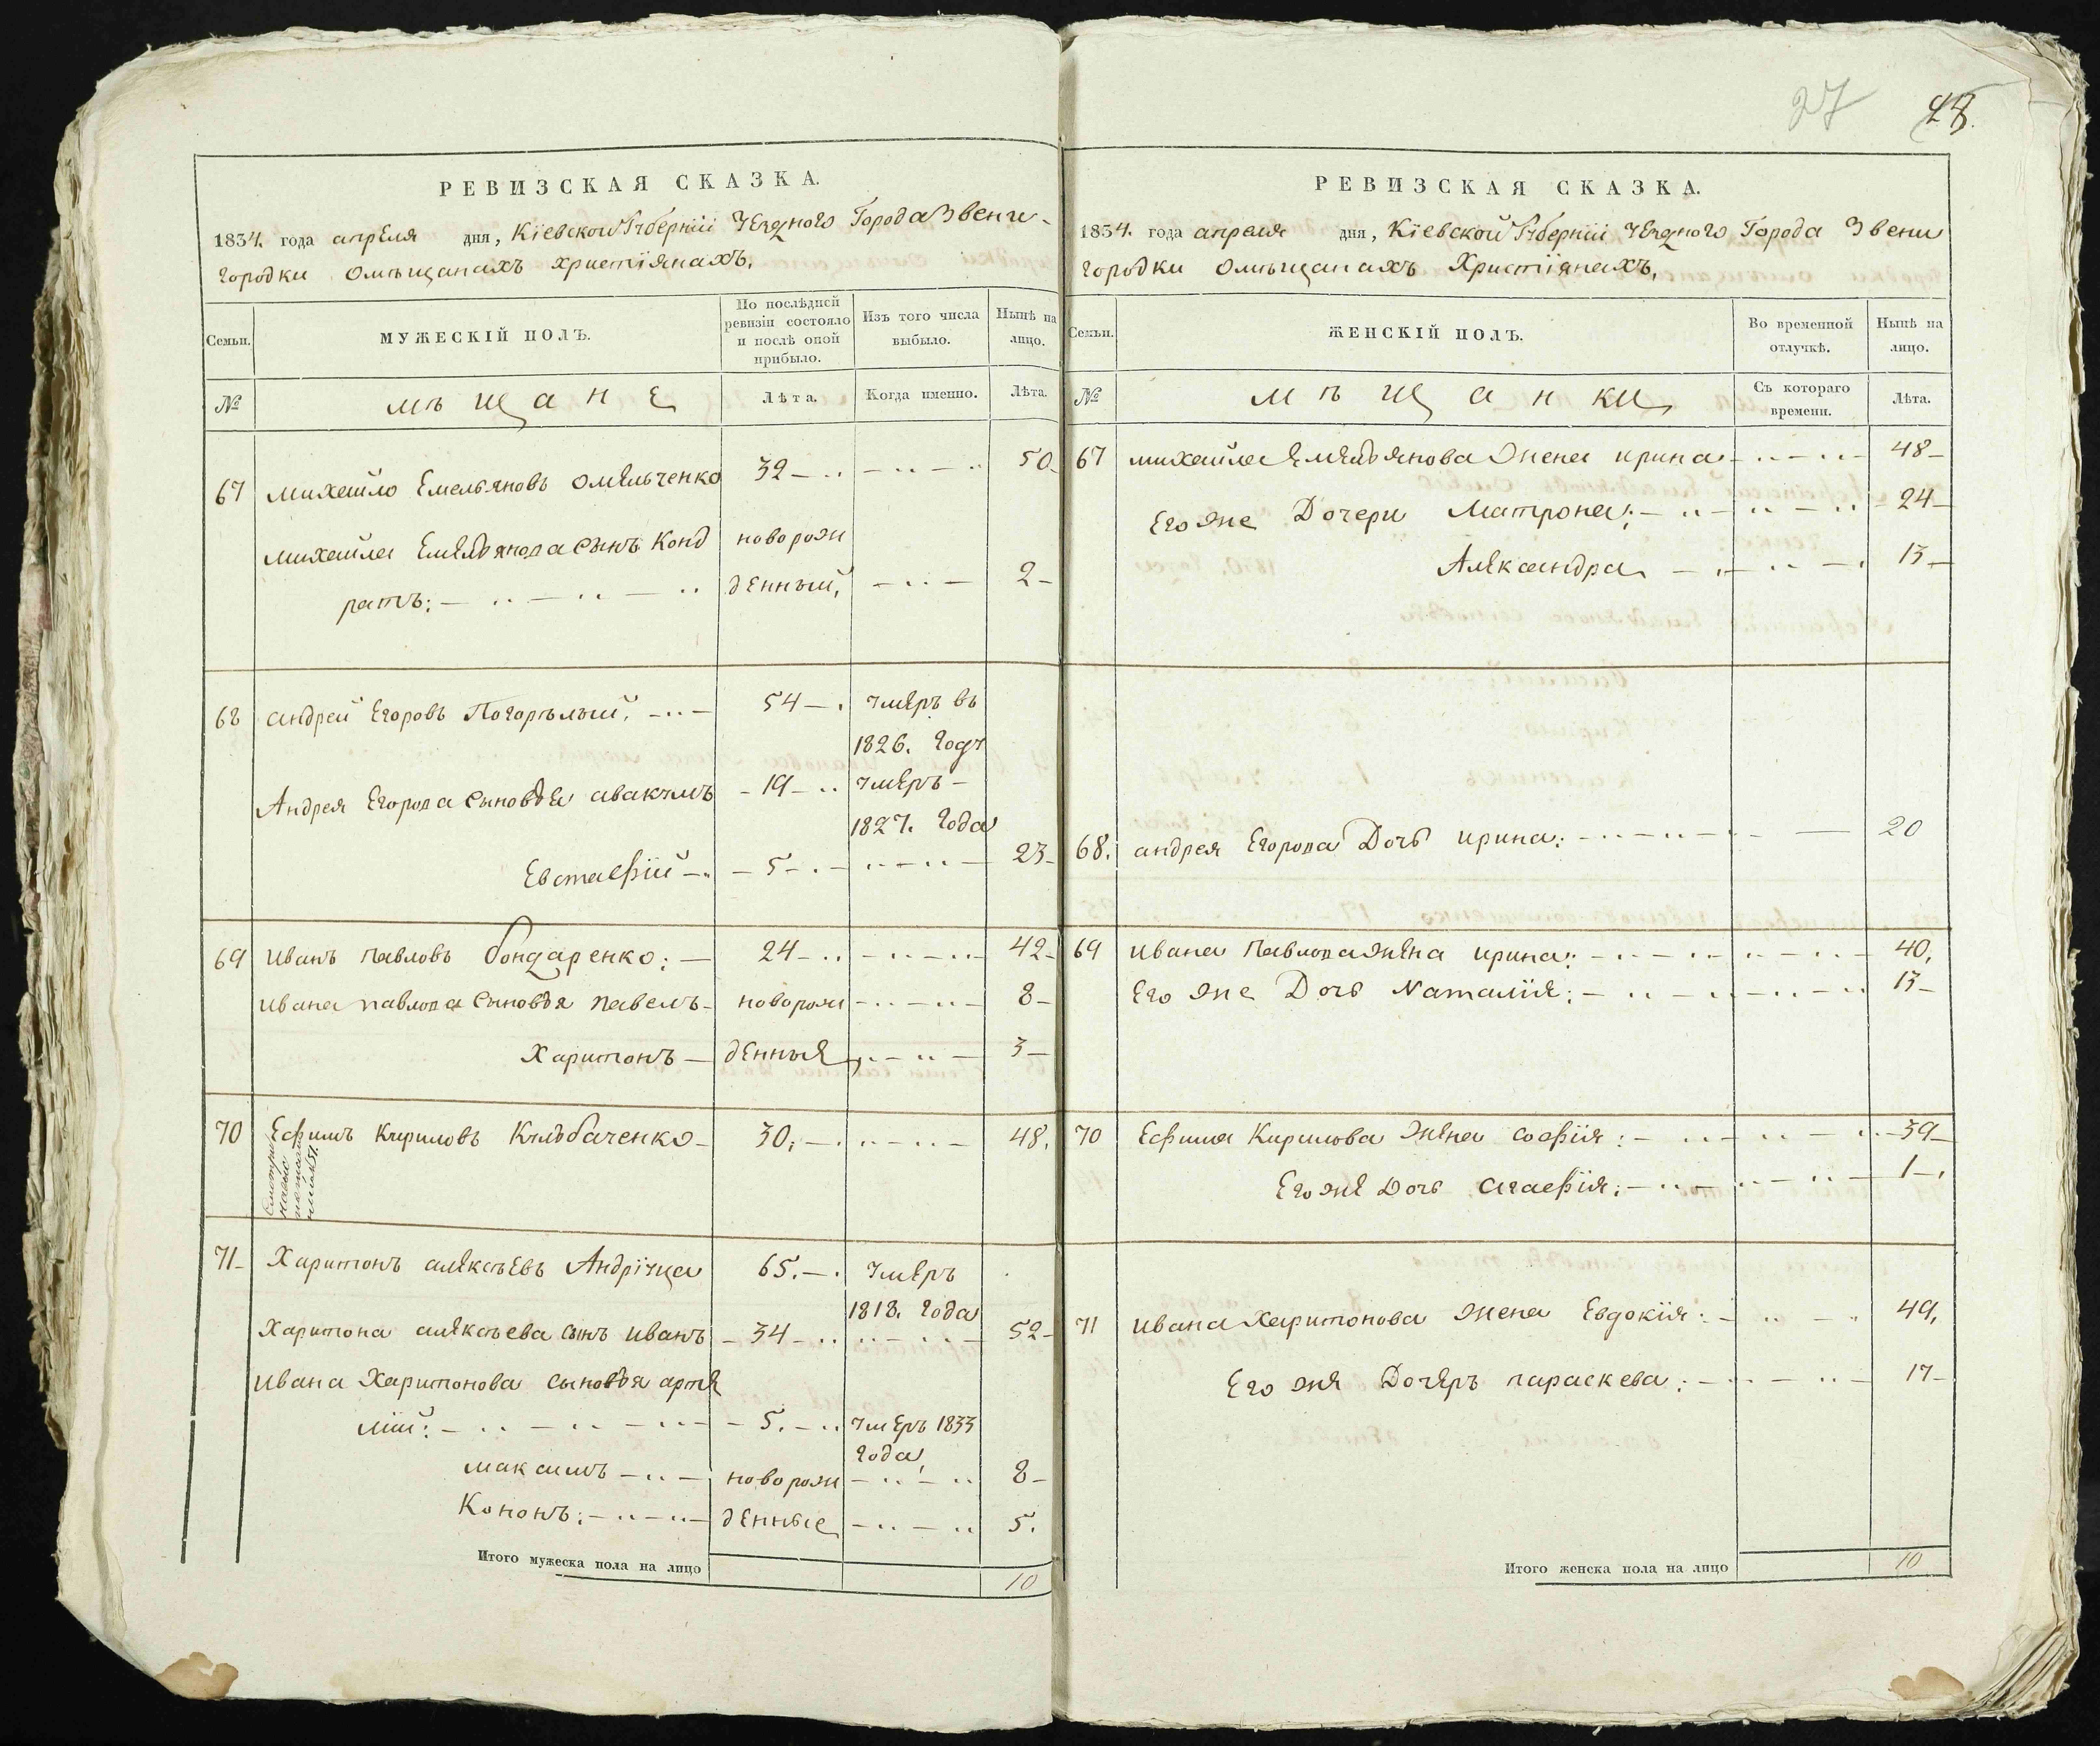 27 48.
РЕВИЗСКАЯ СКАЗКА.
1834. года апреля дня, Кіевской Губерніи Уезднаго Города Звени-
городки Омѣщанахъ христіянахъ.
Семьи.
МУЖЕСКІЙ ПОЛЪ.
По послѣдней ревизіи состояло и послѣ оной прибыло.
Изъ того числа выбыло.
Нынѣ на лицо.
№
мѣщане
Лѣта.
Когда именно.
Лѣта.
67 михайло Емельяновъ Омельченко 32 50
михайла Емельянова сынъ Конд новорож
ратъ: денный, 2
68 андрей Егоровъ Погорѣлый. 54 умеръ въ
1826. году
Андрея Егорова сыновья авакумъ 19 умеръ
1827. года
Евстафій 5 23
69 иванъ павловъ бондаренко: 24 42
ивана павлова сыновья павелъ новорож 8
Харитонъ денныя, 3
70 Ефимъ Кириловъ Кульбаченко 30. 48.
71 Харитонъ алексѣевъ Андріуца 65. умеръ
1818. года
Харитона алексѣева сынъ иванъ 34 52
ивана Харитонова сыновья арте
мій: 5. умеръ 1833
года,
максимъ новорож 8
Кононъ: денные 5.
Итого мужеска пола на лицо 10
РЕВИЗСКАЯ СКАЗКА.
1834. года апреля дня, Кіевской Губерніи Уезднаго Города Звени
городки Омѣщанахъ Христіянахъ.
Семьи.
ЖЕНСКІЙ ПОЛЪ.
Во временной отлучкѣ.
Нынѣ на лицо.
№
мѣщанки
Съ котораго времени.
Лѣта.
67 михайла Емельянова Жена ирина 48
Его же Дочери Матрона: 24
Александра 13
68. андрея Егорова Дочь ирина: 20
69 ивана Павлова жена ирина: 40.
Его же Дочь Наталія: 13
70 Ефима Кирилова Жена софія: 39
Его же Дочь агафія: 1
71 ивана Харитонова жена Евдокія: 49.
Его же Дочеръ параскева: 17
Итого женска пола на лицо 10